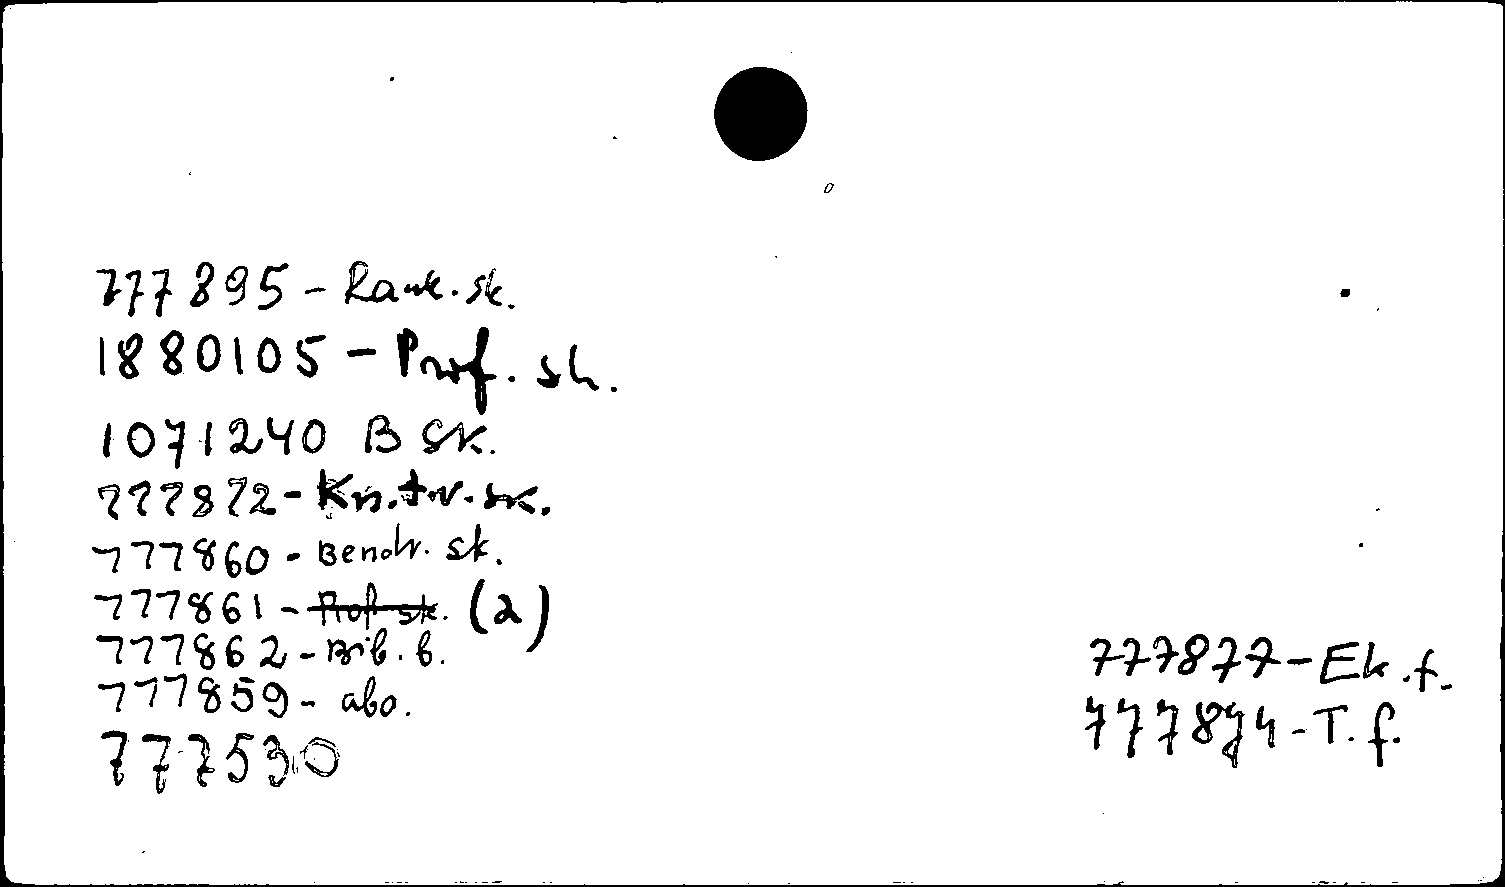 777895 - Rank. sk.
1880105 - Prof. sk.
1071240 B SK.
777872 - Kn. tv. sk.
777860 - Bendr. sk.
777861 - Prof. sk. (2)
777862 - Bib. b.
777859 - abo.
777530
777877 - Ek. f.
777874 - T. f.